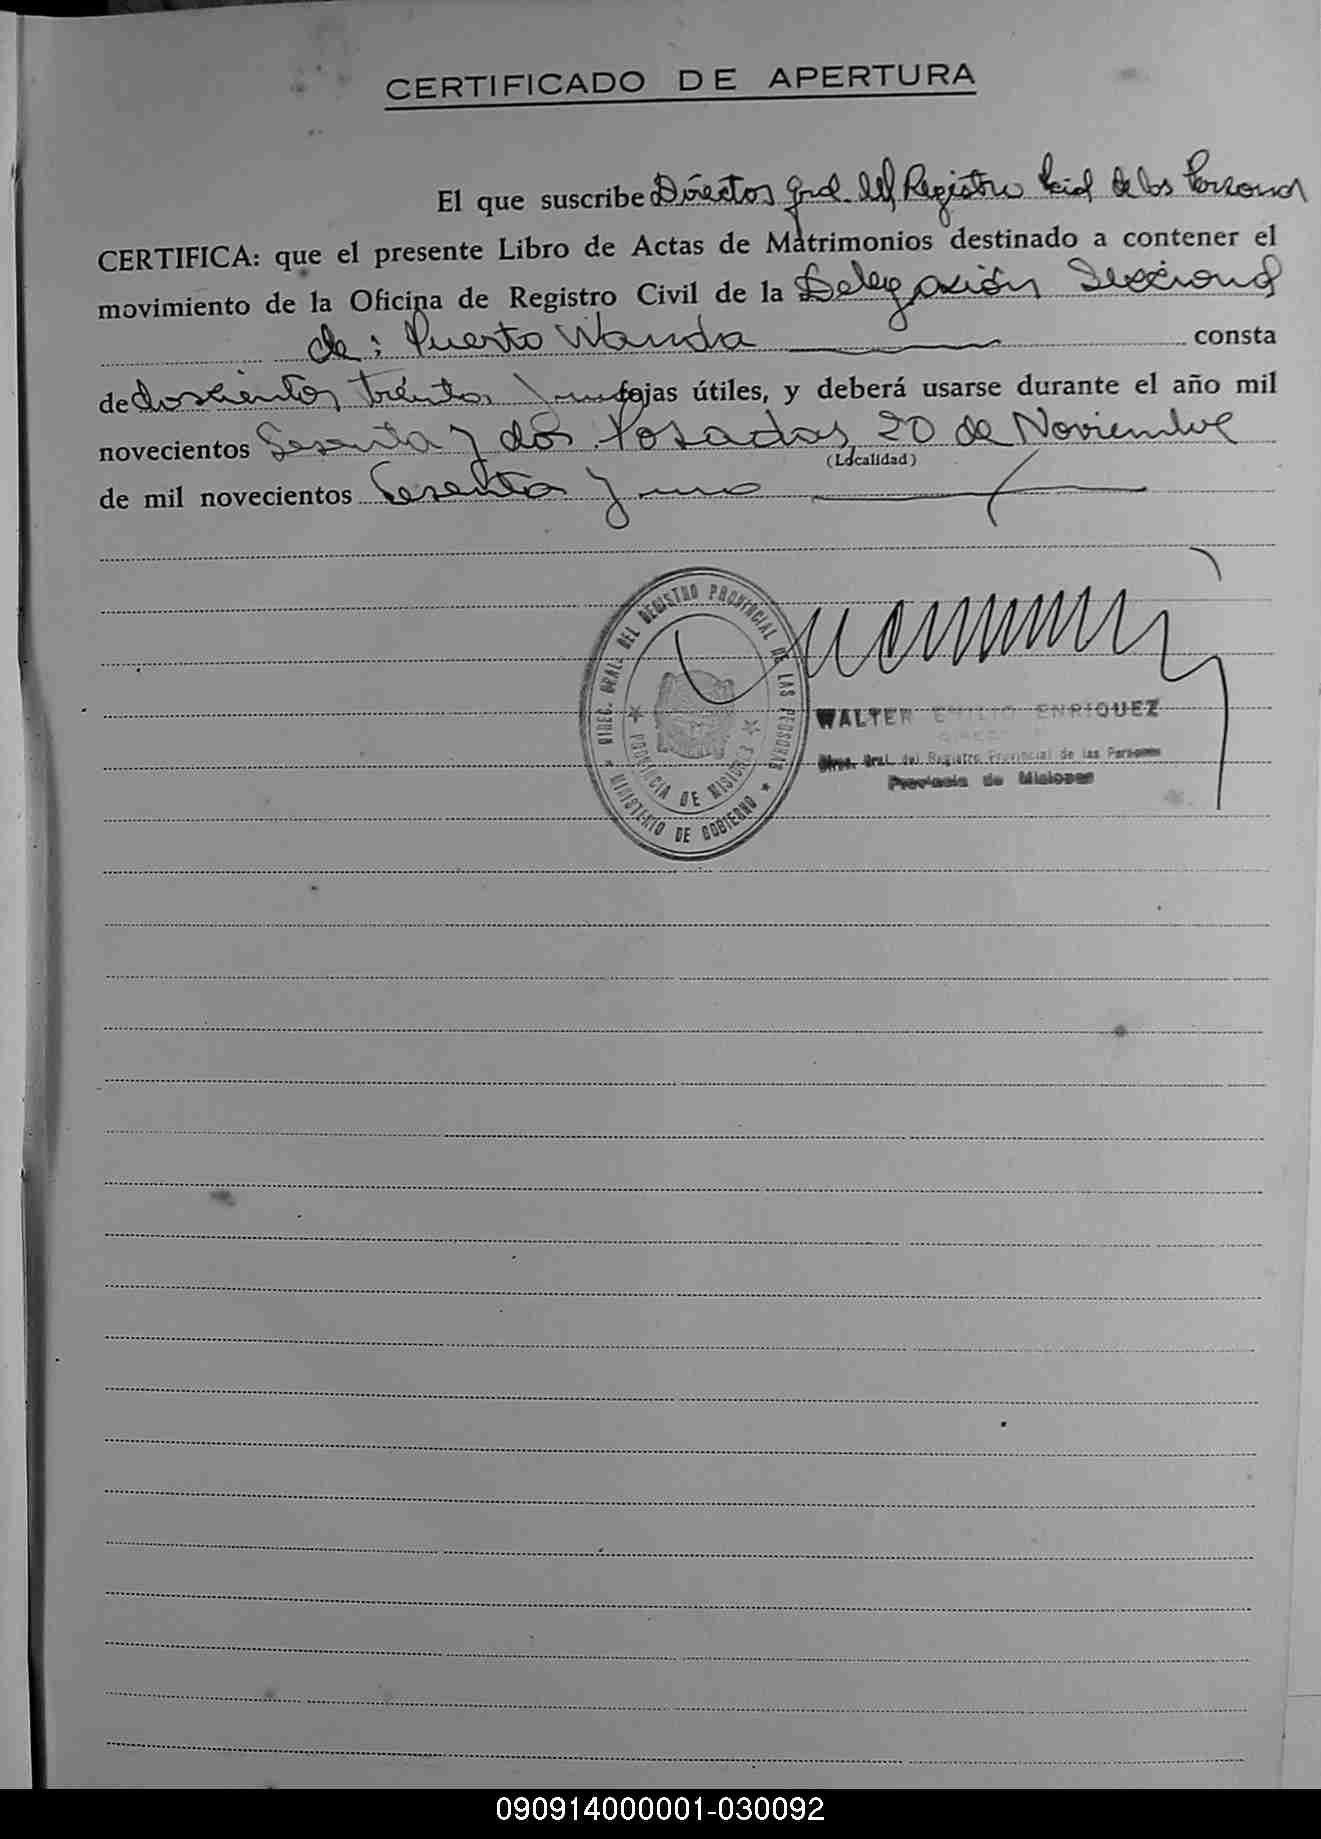 CERTIFICADO DE APERTURA
El que suscribe Director Gral. del Registro Pcial de las Personas
CERTIFICA: que el presente Libro de Actas de Matrimonios destinado a contener el
movimiento de la Oficina de Registro Civil de la Delegación Seccional
de: Puerto Wanda consta
de doscientos treinta fojas útiles, y deberá usarse durante el año mil
novecientos Sesenta y dos Posadas, 20 de Noviembre
(Localidad)
de mil novecientos Sesenta y uno
DIREC. GRAL. DEL REGISTRO PROVINCIAL DE LAS PERSONAS
PROVINCIA DE MISIONES
MINISTERIO DE GOBIERNO
WALTER EMILIO ENRIQUEZ
Direc. Gral. del Registro Provincial de las Personas
Provincia de Misiones
090914000001-030092